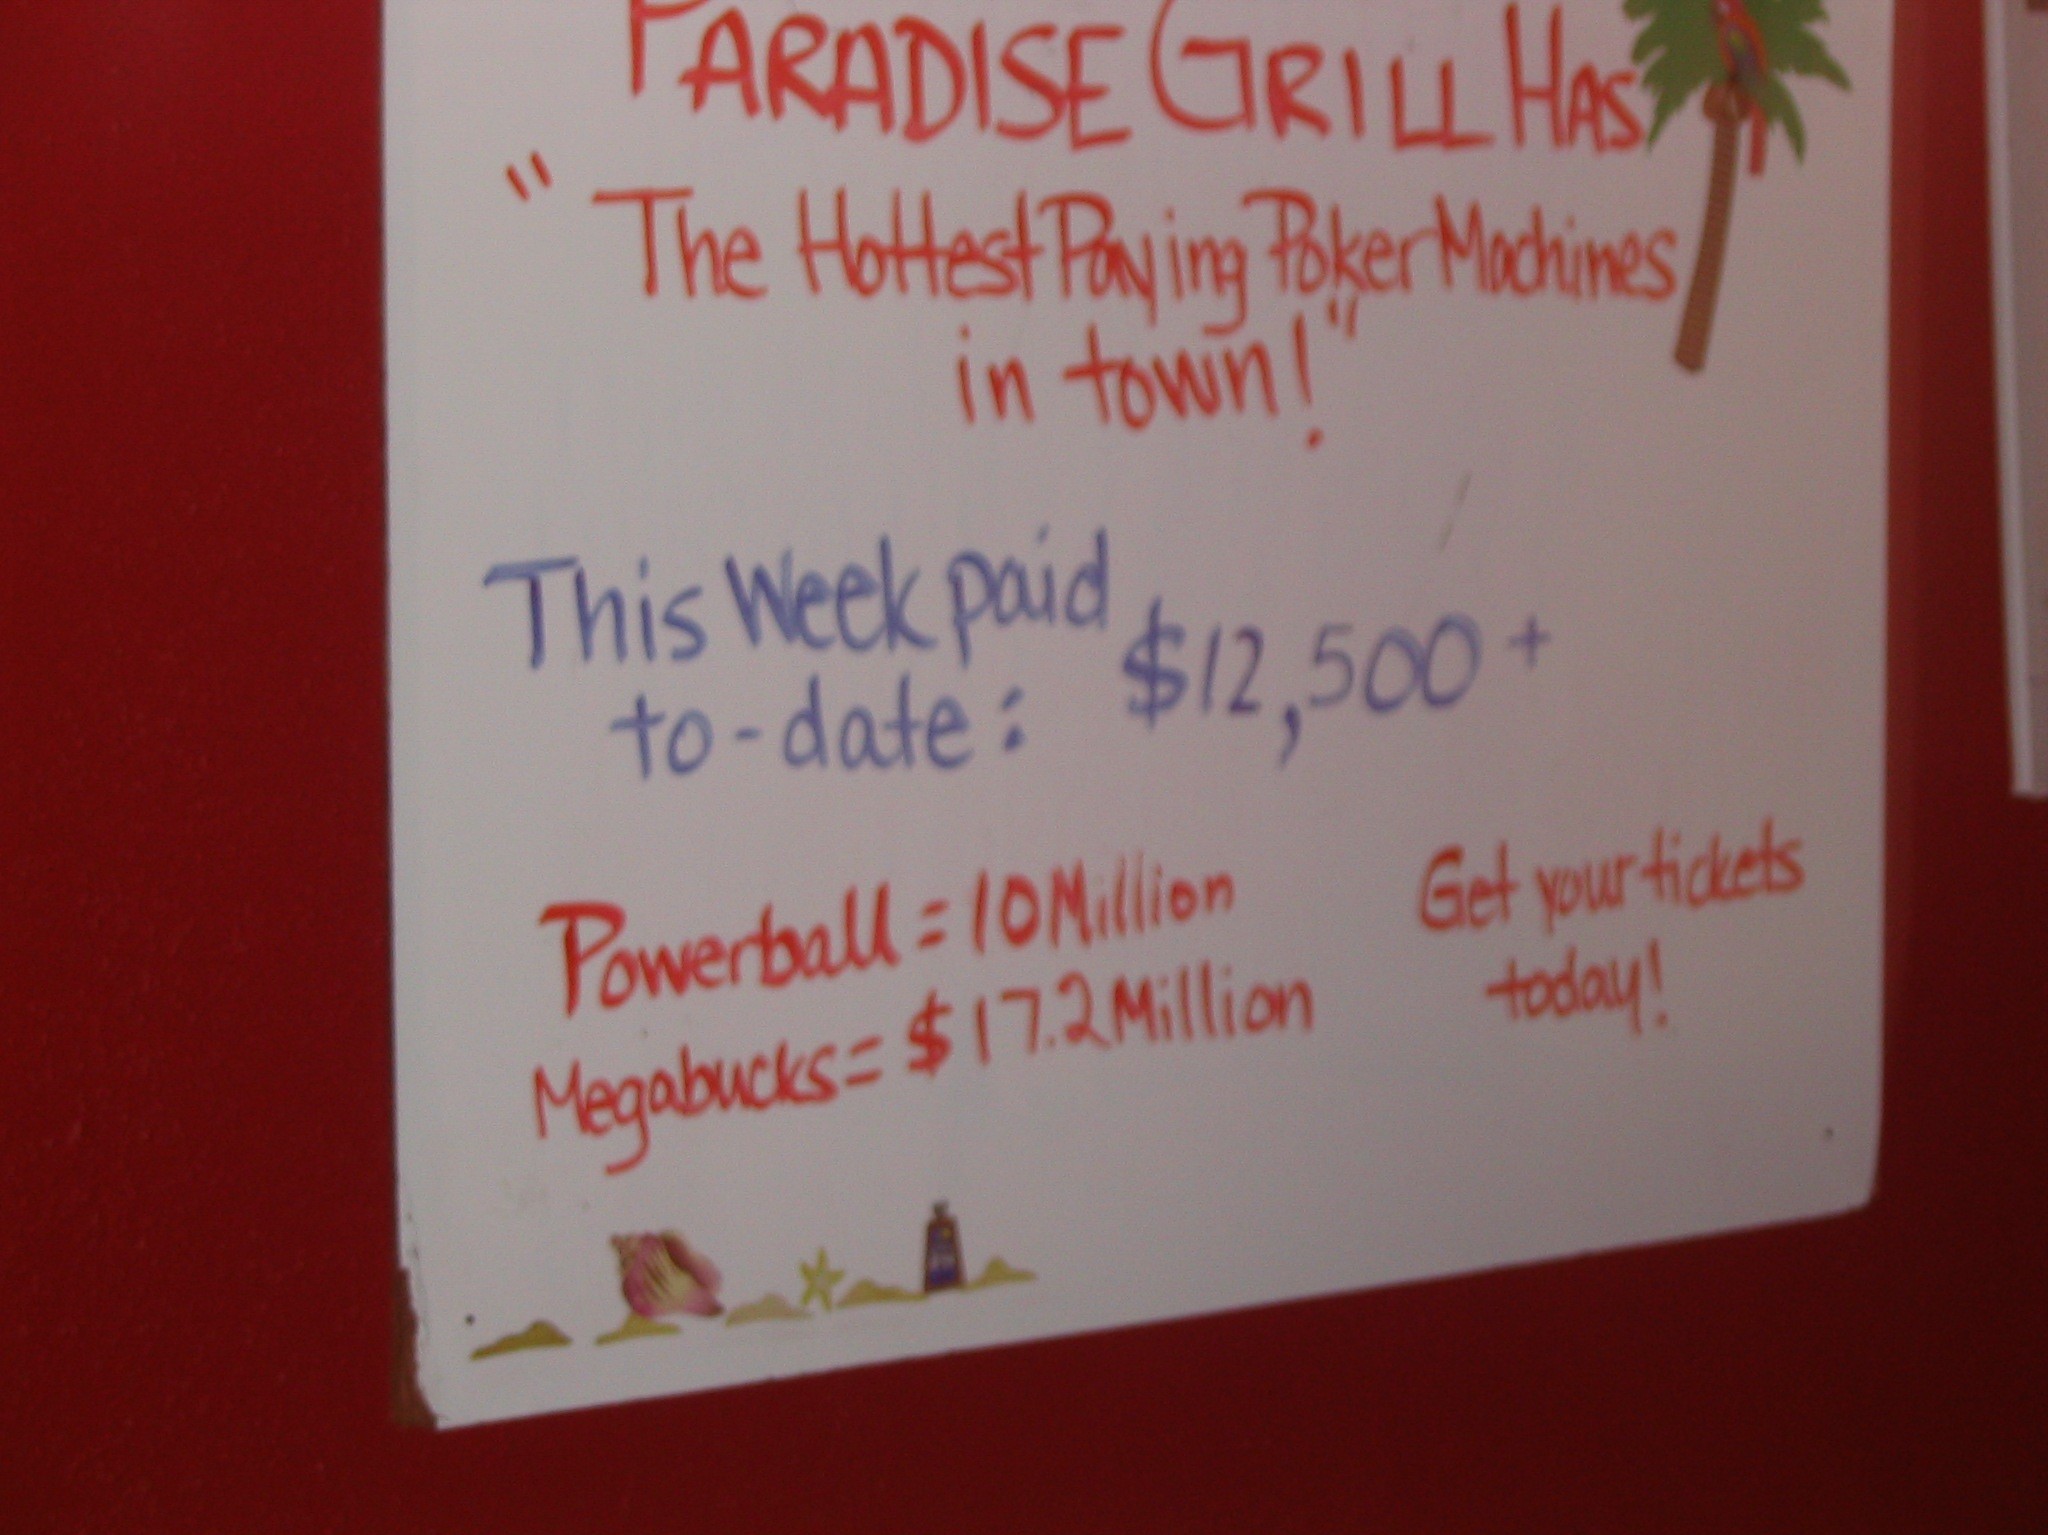 PARADISE GRILL HAS
"The Hottest Paying Poker Machines
in town!"
This Week paid
to-date: $12,500+
Powerball = 10 Million
Megabucks = $17.2 Million
Get your tickets
today!